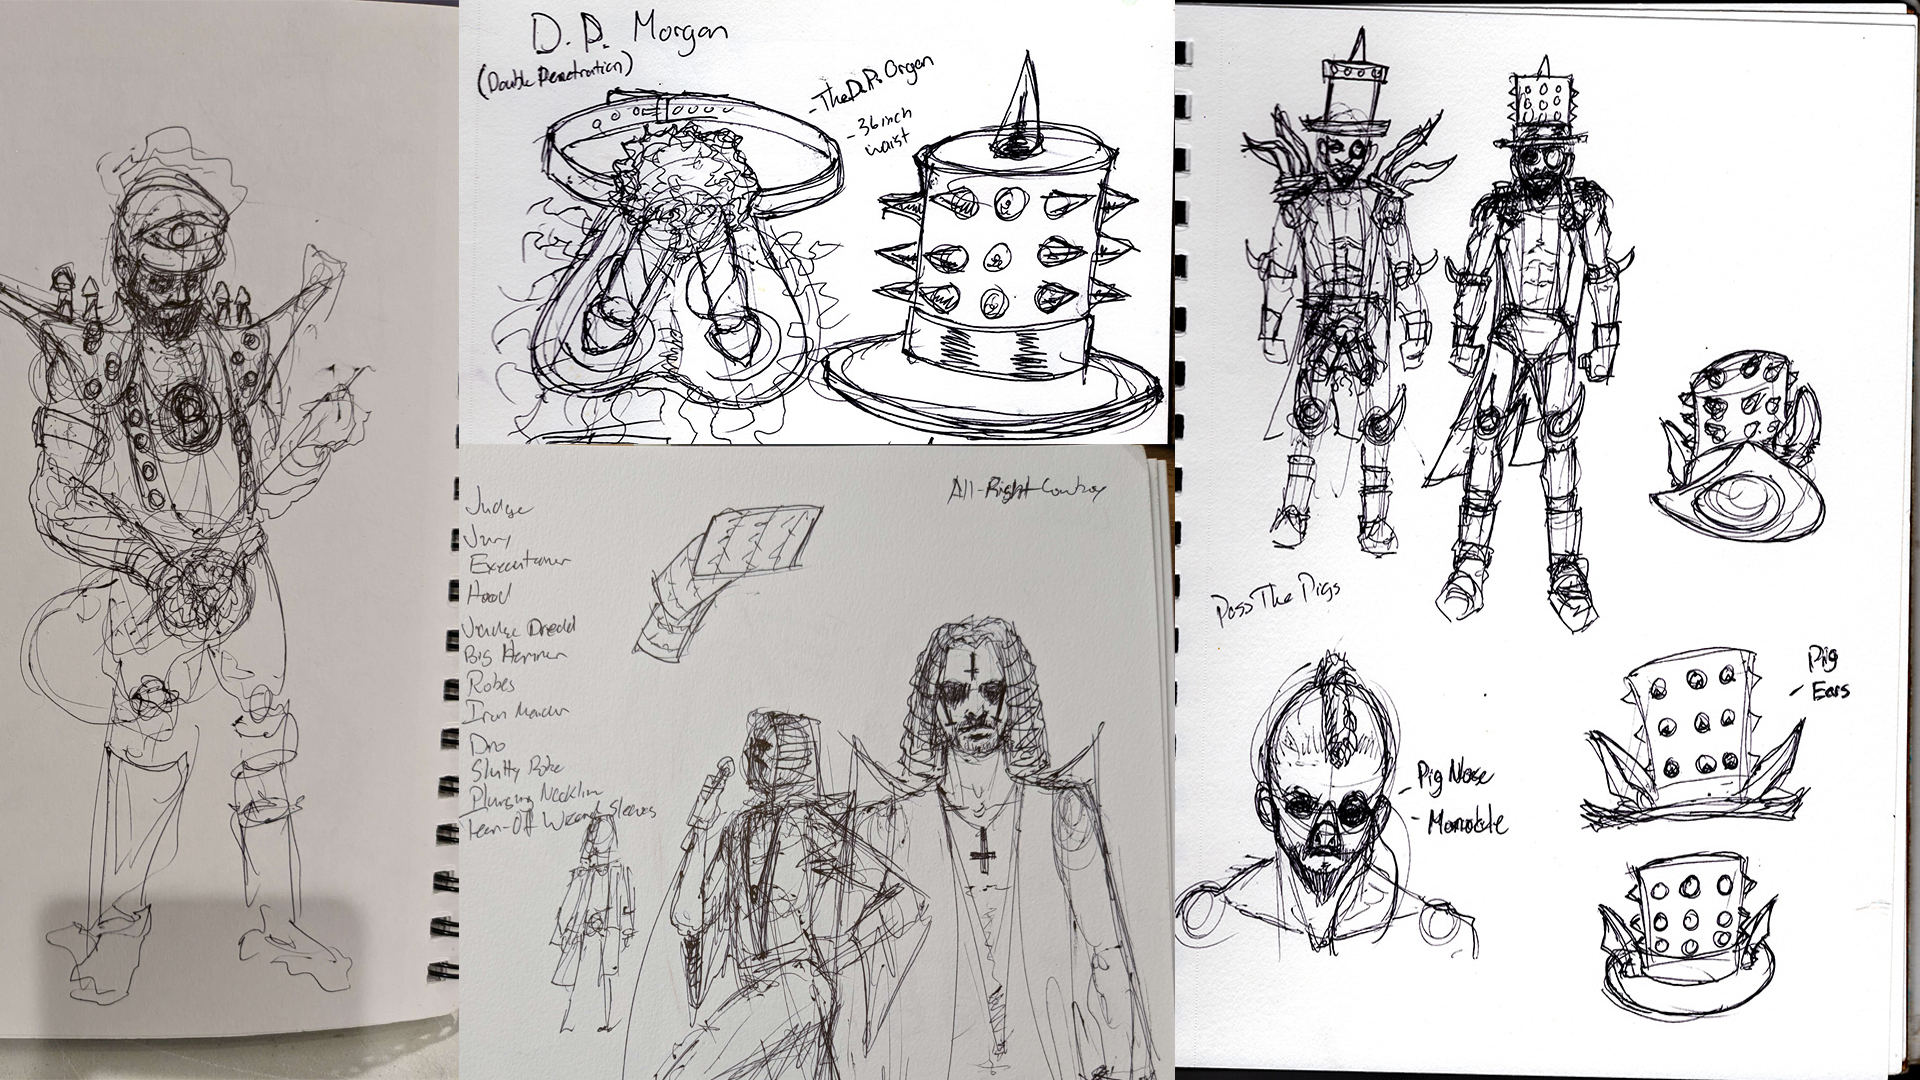 D. P. Morgan
(Double Penetration)
- The D.P. Organ
- 36 inch
waist
All-Right Cowboy
Judge
Jury
Executioner
Hood
Judge Dredd
Big Hammer
Robes
Iron Maiden
Dio
Slutty Robe
Plunging Neckline
Tear-Off Wizard Sleeves
Pass The Pigs
Pig
- Ears
- Pig Nose
- Monocle